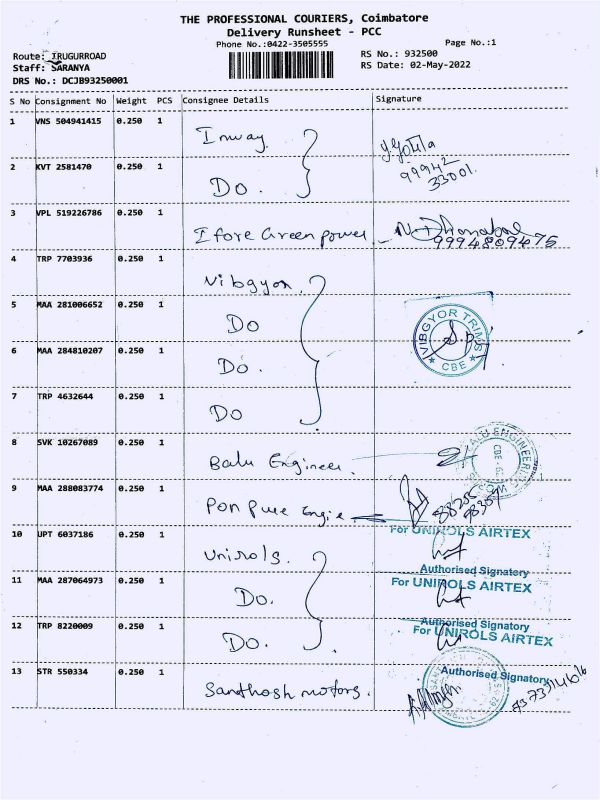 THE PROFESSIONAL COURIERS, Coimbatore
Delivery Runsheet - PCC
Phone No.:0422-3505555
Page No.:1
Route: IRUGURROAD
RS No.: 932500
Staff: SARANYA
RS Date: 02-May-2022
DRS No.: DCJB93250001
S No Consignment No Weight PCS Consignee Details Signature
1 VNS 504941415 0.250 1 Inway
2 KVT 2581470 0.250 1 Do. 99942 33001.
3 VPL 519226786 0.250 1 Ifore Green power 9994809475
4 TRP 7703936 0.250 1 Vibgyor
5 MAA 281006652 0.250 1 Do VIBGYOR TRIMS CBE
6 MAA 284810207 0.250 1 Do.
7 TRP 4632644 0.250 1 Do
8 SVK 10267089 0.250 1 Balu Engineer. BALU ENGINEERING WORKS CBE
9 MAA 288083774 0.250 1 Pon pure Engie
10 UPT 6037186 0.250 1 Unirols. For UNIROLS AIRTEX
Authorised Signatory
11 MAA 287064973 0.250 1 Do. For UNIROLS AIRTEX
Authorised Signatory
12 TRP 8220009 0.250 1 Do. For UNIROLS AIRTEX
Authorised Signatory
13 STR 550334 0.250 1 Santhosh motors.